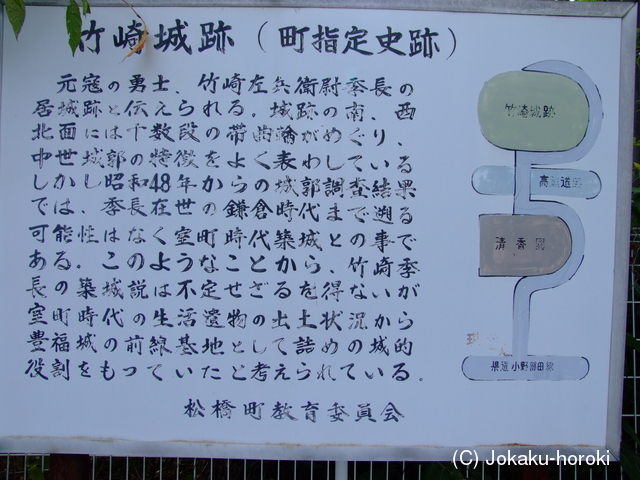 竹崎城跡（町指定史跡）
元寇の勇士、竹崎左兵衛尉季長の
居城跡と伝えられる。城跡の南、西
北面には十数段の帯曲輪がめぐり、
中世城郭の特徴をよく表わしている
しかし昭和48年からの城郭調査結果
では、季長在世の鎌倉時代まで遡る
可能性はなく室町時代築城との事で
ある。このようなことから、竹崎季
長の築城説は不定せざるを得ないが
室町時代の生活遺物の出土状況から
豊福城の前線基地として詰めの城的
役割をもっていたと考えられている。
松橋町教育委員会
竹崎城跡
高速道路
清香園
現
県道小野部田線
(C) Jokaku-horoki